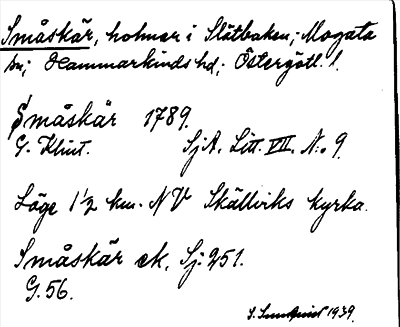 Småskär, holmar i Slätbaken; Mogata
sn; Hammarkinds hd; Östergötl. l.
Småskär 1789.
G. Klint. SjA. Litt. VII. N:o 9.
Läge 1 1/2 km. NV Skällviks kyrka.
Småskär ek. Sj. 251.
G. 56.
S. Sundquist 1939.